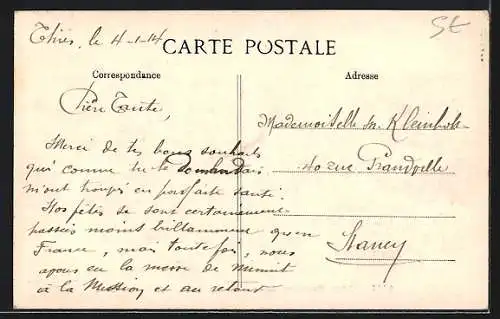 Thiès, le 4-1-14
CARTE POSTALE
Correspondance
Adresse
Chère Tante,
Merci de tes bons souhaits
qui comme tu le demandais
m'ont trouvé en parfaite santé.
Nos fêtes se sont certainement
passées moins brillamment qu'en
France, mais toutefois, nous
avons eu la messe de Minuit
à la Mission et au retour
Mademoiselle M.
40 rue Grandville
Nancy